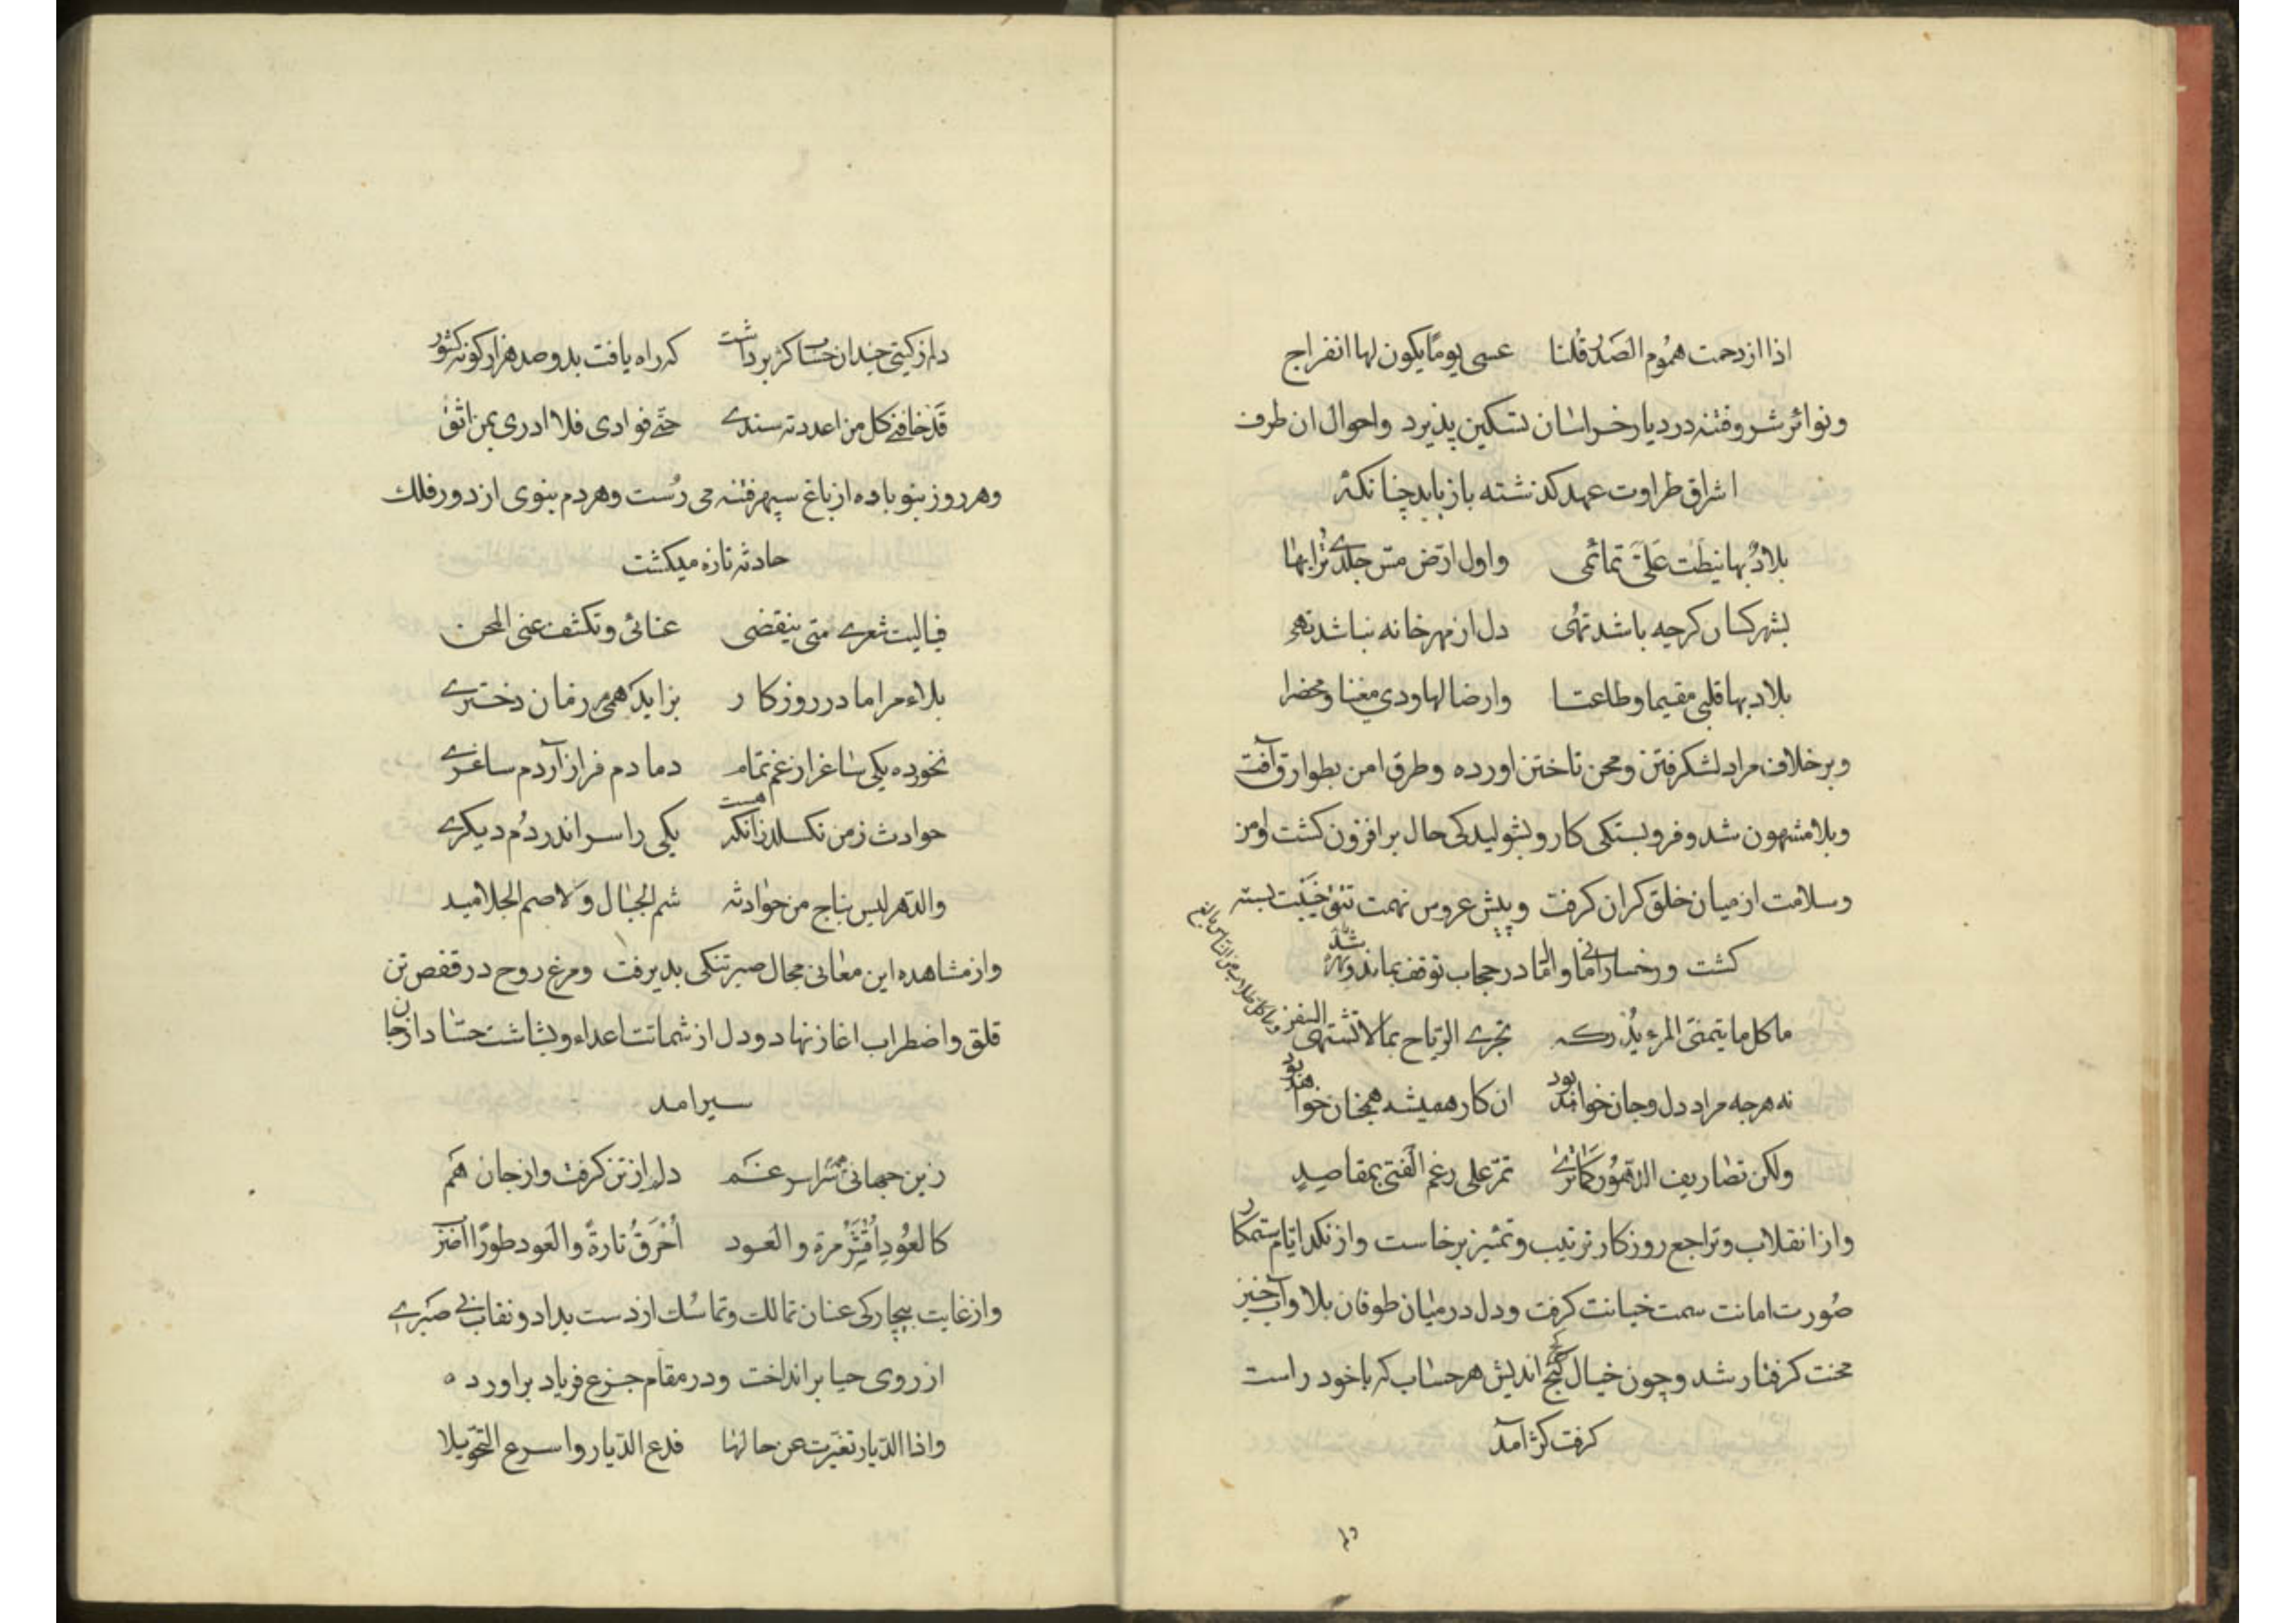 اذا ازدحمت هموم الصدر قلنا عسی یوما یکون لها انفراج
و نوائر شر و فتنه در دیار خراسان تسکین پذیرد و احوال ان طرف
اشراق طراوت عهد کذشته باز یابد چنانکه
بلاد بها نیطت علی تمائمی و اول ارض مس جلدی ترابها
بشهر کسان کرچه باشد تهی دل از مهر خانه نباشد تهی
بلاد بها قلبی مقیما وطاعتا وارضا لها ودی مغنا ومحضرا
و بر خلاف مراد لشکر فتن و محن تاختن اورده و طرق امن بطوارق آفت
و بلا مشهون شد و فروبستکی کار و بشولیدکی حال بر افزون کشت و امن
و سلامت از میان خلق کران کرفت و پیش عروس نهمت تتق خیبت بسته
کشت و رخسار امانی و امال در حجاب توقف بماند
ما کل ما یتمنی المرء یدرکه تجری الریاح بما لا تشتهی السفن
نه هرجه مراد دل و جان خواهد بود ان کار همیشه همچنان خواهد بود
ولکن تصاریف الدهور کما تری تمر علی رغم الفتی بمقاصید
و از انقلاب و تراجع روزکار ترتیب و تمییز برخاست و از نکد ایام ستمکار
صورت امانت سمت خیانت کرفت و دل در میان طوفان بلا و آب خیز
محنت کرفتار شد و چون خیال کج اندیش هر حساب که با خود راست
کرفت کژ آمد
دلم ز کیتی چندان حساب کژ برداشت که راه یافت بدو صد هزار کونه کشور
قد خاننی کل من اعددته سندی حتی فوادی فلا ادری بمن اثق
و هر روز بنو باده از باغ سپهر فتنه می رست و هر دم بنوی از دور فلک
حادثه تازه میکشت
فیا لیت شعری متی ینقضی عنائی وتکشف عنی المحن
بلاء مرا مادر روزکار بزاید همی هر زمان دختری
نخورده یکی ساغر از غم تمام دمادم فراز آردم ساغری
حوادث ز من نکسلد زانکه هست یکی را سر اندر دم دیکری
والدهر لیس بناج من حوادثه شم الجبال ولا صم الجلامید
و از مشاهده این معانی مجال صبر تنکی بدیرفت و مرغ روح در قفص تن
قلق و اضطراب اغاز نهاد و دل از شماتت اعداء و بشاشت حساد از جان
سیر امد
زین جهانی سراسر غم دلم از تن کرفت و از جان هم
کالعود اقتر مرة والعود احرق تارة والعود طورا اضرب
و از غایت بیچارکی عنان تمالک و تماسک از دست بداد و نقاب بی صبری
از روی حیا بر انداخت و در مقام جزع فریاد براورد ه
واذا الدیار تغیرت عن حالها فدع الدیار واسرع التحویلا